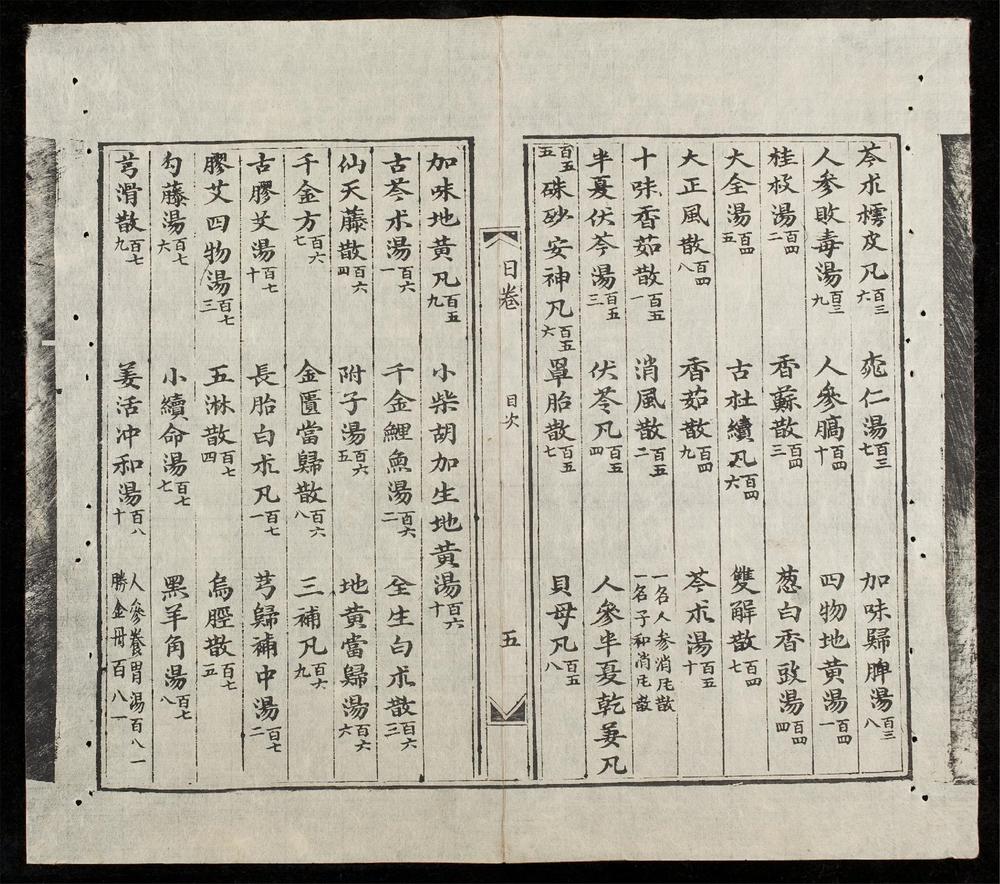 芩朮樗皮凡百三六 𣑯仁湯百三七 加味歸脾湯百三八
人參敗毒湯百三九 人參膏百四十 四物地黃湯百四一
桂枝湯百四二 香蘇散百四三 葱白香豉湯百四四
大全湯百四五 古杜續凡百四六 雙解散百四七
大正風散百四八 香茹散百四九 芩朮湯百五十
十味香茹散百五一 消風散百五二 一名人參消凬散 一名子和消凬散
半夏伏苓湯百五三 伏苓凡百五四 人參半夏乾姜凡
百五五 硃砂安神凡百五六 罩胎散百五七 貝母凡百五八
日卷 目次 五
加味地黃凡百五九 小柴胡加生地黃湯百六十
古芩朮湯百六一 千金鯉魚湯百六二 全生白朮散百六三
仙天藤散百六四 附子湯百六五 地黃當歸湯百六六
千金方百六七 金匱當歸散百六八 三補凡百六九
古膠艾湯百七十 長胎白朮凡百七一 芎歸補中湯百七二
膠艾四物湯百七三 五淋散百七四 烏脛散百七五
勾藤湯百七六 小續命湯百七七 黑羊角湯百七八
芎滑散百七九 羌活冲和湯百八十 人參養胃湯百八一 勝金丹百八一